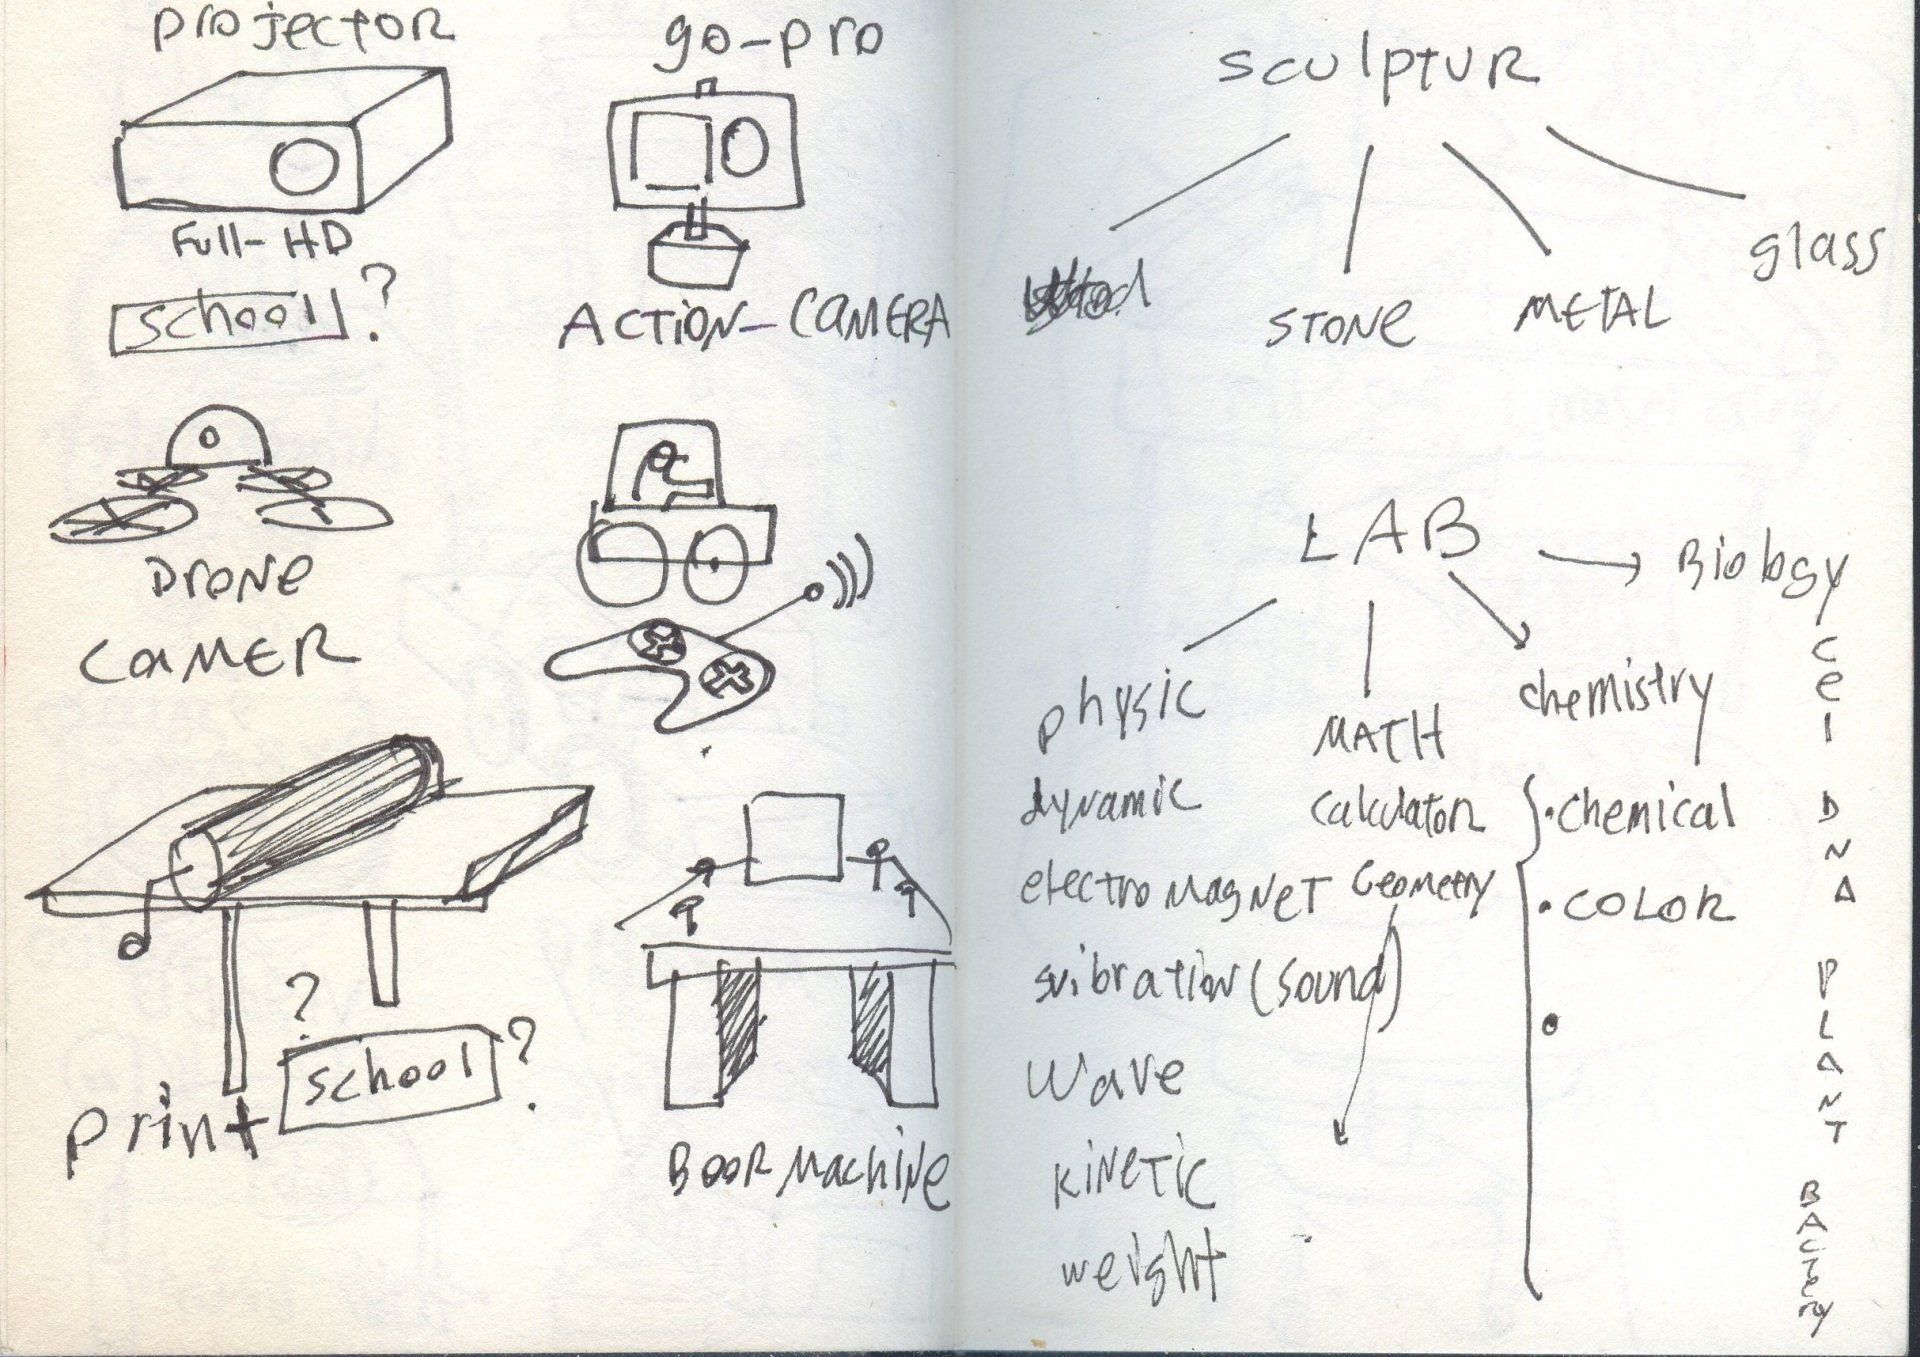 projector
Full-HD
school?
go-pro
ACTiON-CAMERA
DroNe
CaMER
print
? school ?
BOOR MachiNe
sculptuR
STONe
METAL
glass
LAB
Biology
cel
DNA
PLANT
BACTerY
physic
dynamic
electroMagNeT
svibration (sound)
Wave
KiNeTic
weight
MATH
CalculatoR
GeoMetry
chemistry
• chemical
• COLOR
•